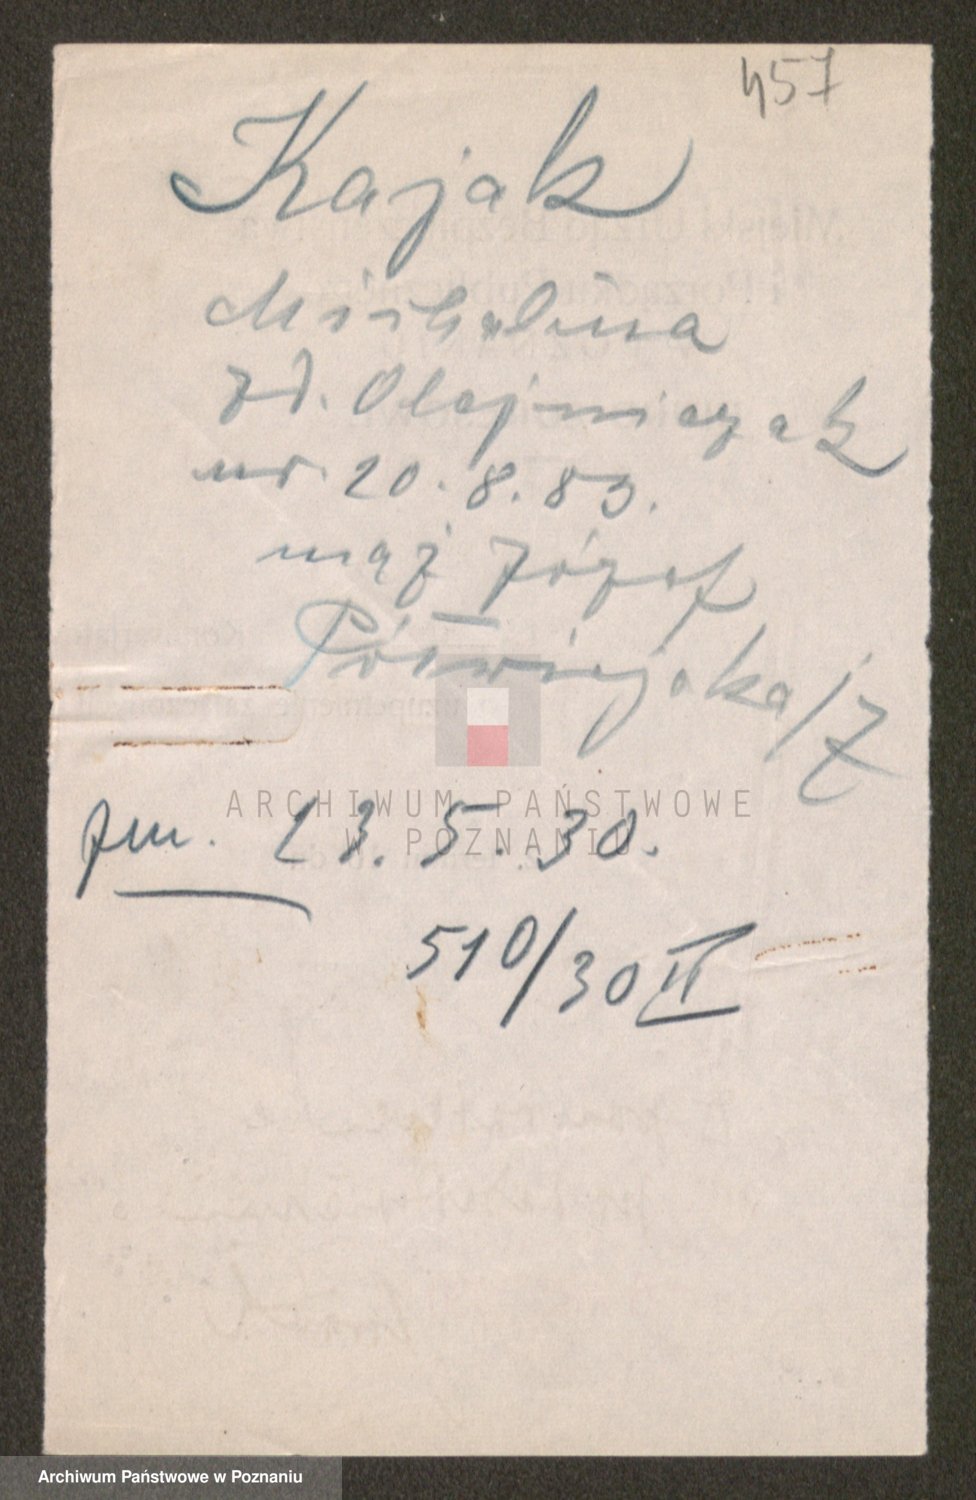 457
Kajak
Michalina
zd. Olejniczak
ur. 20.8.83.
mąż Józef
Półwiejska / 7
zm. 23.5.30.
510/30 II
ARCHIWUM PAŃSTWOWE
W POZNANIU
Archiwum Państwowe w Poznaniu